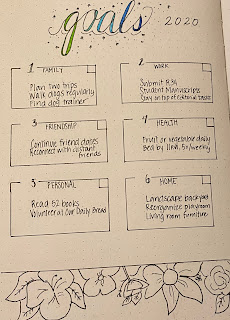 goals
2020
1 FAMILY
Plan two trips
Walk dogs regularly
Find dog trainer
2 WORK
Submit
Student Manuscripts
Stay on top of
3 FRIENDSHIP
Continue friend dates
Reconnect with distant
friends
4 HEALTH
Fruit or vegetable daily
Bed by
5 PERSONAL
Read 52 books
Volunteer at Our Daily Bread
6 HOME
Landscape backyard
Reorganize playroom
Living room furniture